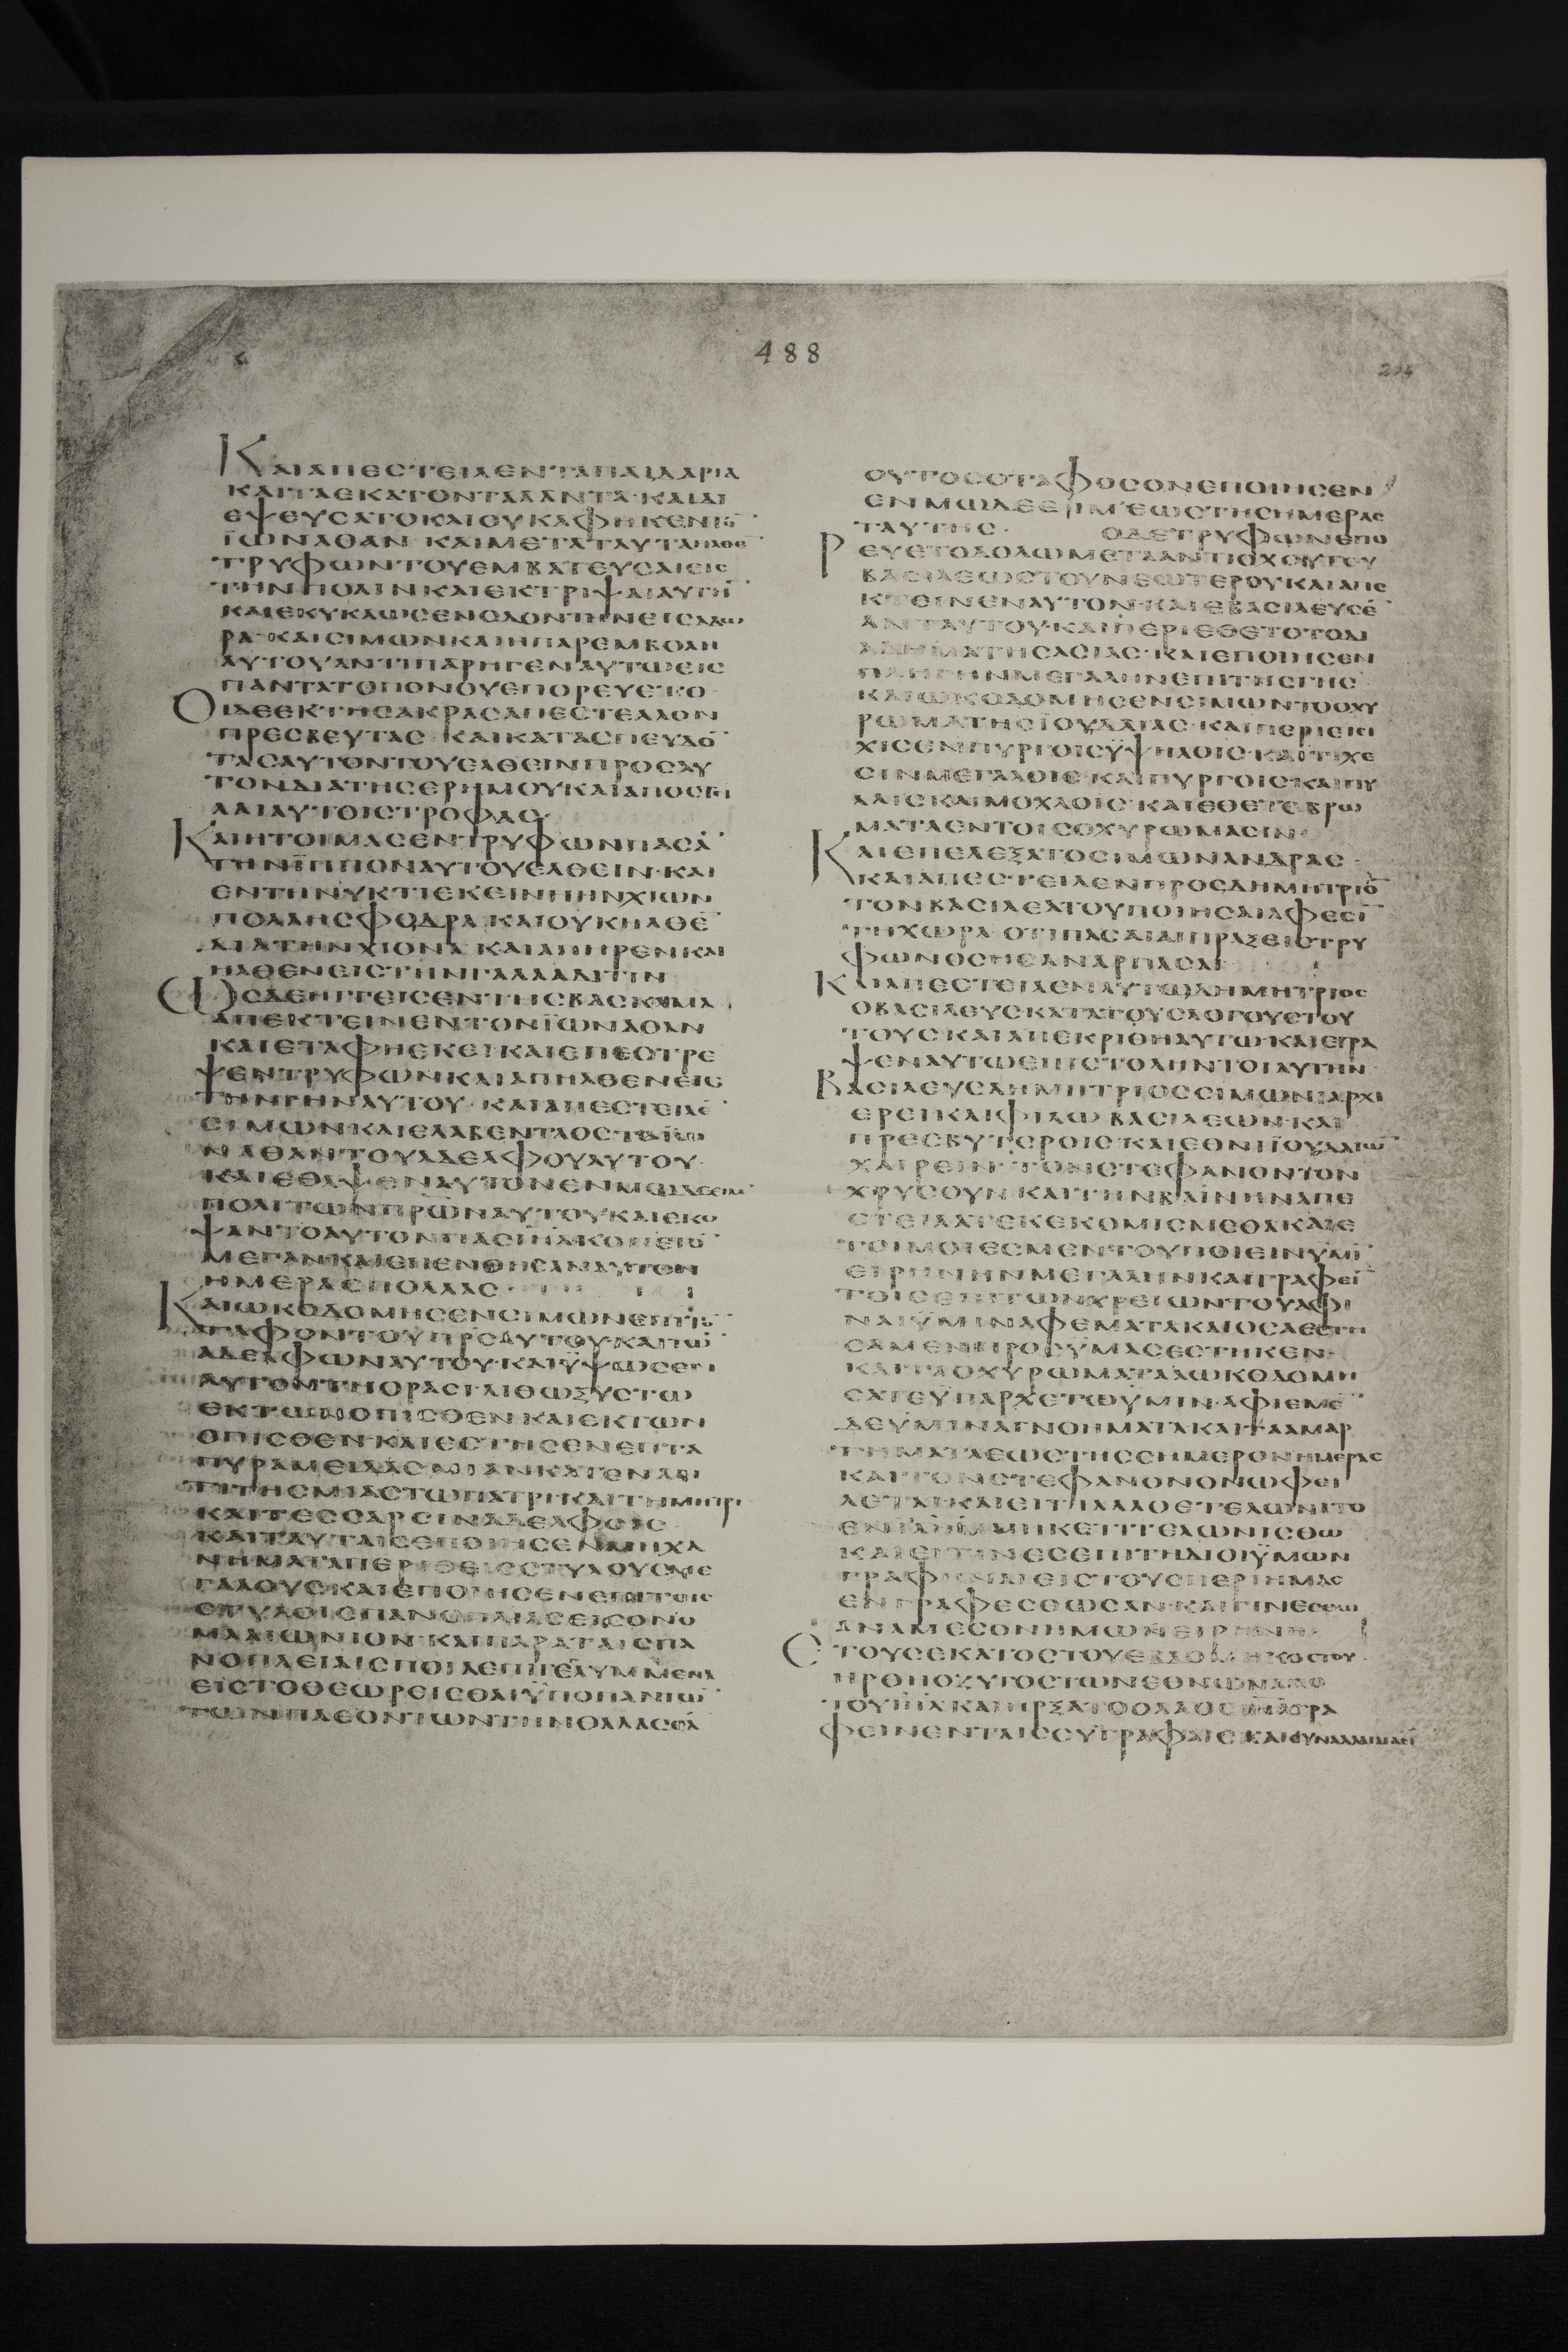 488
ΚΑΙΑΠΕΣΤΕΙΛΕΝΤΑΠΑΙΔΑΡΙΑ
ΚΑΙΤΑΕΚΑΤΟΝΤΑΛΑΝΤΑ·ΚΑΙΔΙ
ΕΨΕΥΣΑΤΟΚΑΙΟΥΚΑΦΗΚΕΝΤΟ̅
ΪΩΝΑΘΑΝ ΚΑΙΜΕΤΑΤΑΥΤΑΗΛΘΕ̅
ΤΡΥΦΩΝΤΟΥΕΜΒΑΤΕΥΣΑΙΕΙΣ
ΤΗΝΠΟΛΙΝΚΑΙΕΚΤΡΙΨΑΙΑΥΤΗ̅
ΚΑΙΕΚΥΚΛΩΣΕΝΟΔΟΝΤΗΝΕΙΣΑΔΩ
ΡΑ·ΚΑΙΣΙΜΩΝΚΑΙΗΠΑΡΕΜΒΟΛΗ
ΑΥΤΟΥΑΝΤΙΠΑΡΗΓΕΝΑΥΤΩΕΙΣ
ΠΑΝΤΑΤΟΠΟΝΟΥΕΠΟΡΕΥΕΤΟ
ΟΙΔΕΕΚΤΗΣΑΚΡΑΣΑΠΕΣΤΕΛΛΟΝ
ΠΡΕΣΒΕΥΤΑΣ ΚΑΙΚΑΤΑΣΠΕΥΔΟ̅
ΤΑΣΑΥΤΟΝΤΟΥΕΛΘΕΙΝΠΡΟΣΑΥ
ΤΟΝΔΙΑΤΗΣΕΡΗΜΟΥΚΑΙΑΠΟΣΤΙ
ΛΑΙΑΥΤΟΙΣΤΡΟΦΑΣ
ΚΑΙΗΤΟΙΜΑΣΕΝΤΡΥΦΩΝΠΑΣΑ̅
ΤΗΝΪΠΠΟΝΑΥΤΟΥΕΛΘΕΙΝ·ΚΑΙ
ΕΝΤΗΝΥΚΤΙΕΚΕΙΝΗΗΝΧΙΩΝ
ΠΟΛΛΗΣΦΟΔΡΑ ΚΑΙΟΥΚΗΛΘΕ̅
ΔΙΑΤΗΝΧΙΟΝΑ ΚΑΙΑΠΗΡΕΝΚΑΙ
ΗΛΘΕΝΕΙΣΤΗΝΓΑΛΑΑΔΙΤΙΝ
ΩΣΔΕΗΓΓΕΙΣΕΝΤΗΣΒΑΣΚΑΜΑ
ΑΠΕΚΤΕΙΝΕΝΤΟΝΪΩΝΑΘΑΝ
ΚΑΙΕΤΑΦΗΕΚΕΙΚΑΙΕΠΕΣΤΡΕ
ΨΕΝΤΡΥΦΩΝΚΑΙΑΠΗΛΘΕΝΕΙΣ
ΤΗΝΓΗΝΑΥΤΟΥ·ΚΑΙΑΠΕΣΤΕΙΛΕ̅
ΣΙΜΩΝΚΑΙΕΛΑΒΕΝΤΑΟΣΤΑΪΩ
ΝΑΘΑΝΤΟΥΑΔΕΛΦΟΥΑΥΤΟΥ·
ΚΑΙΕΘΑΨΕΝΑΥΤΟΝΕΝΜΩΔΕΕΙΜ
ΠΟΛΙΤΩΝΠΡΩΝΑΥΤΟΥΚΑΙΕΚΟ
ΨΑΝΤΟΑΥΤΟΝΠΑΣΙΗΛΚΟΠΕΤΟ̅
ΜΕΓΑΝΚΑΙΕΠΕΝΘΗΣΑΝΑΥΤΟΝ
ΗΜΕΡΑΣΠΟΛΛΑΣ
ΚΑΙΩΚΟΔΟΜΗΣΕΝΣΙΜΩΝΕΠΙΤΟ̅
ΤΑΦΟΝΤΟΥΠΡΣΑΥΤΟΥ·ΚΑΙΤΩ̅
ΑΔΕΛΦΩΝΑΥΤΟΥ·ΚΑΙΫΨΩΣΕΝ
ΑΥΤΟΝΤΗΟΡΑΣΙΛΙΘΩΞΥΣΤΩ
ΕΚΤΩΝΟΠΙΣΘΕΝΚΑΙΕΚΤΩΝ
ΟΠΙΣΘΕΝ·ΚΑΙΕΣΤΗΣΕΝΕΠΤΑ
ΠΥΡΑΜΕΙΔΑΣΜΙΑΝΚΑΤΕΝΑΝ
ΤΙΤΗΣΜΙΑΣΤΩΠΑΤΡΙ·ΚΑΙΤΗΜΗΤΡΙ
ΚΑΙΤΕΣΣΑΡΣΙΝΑΔΕΛΦΟΙΣ
ΚΑΙΤΑΥΤΑΙΣΕΠΟΙΗΣΕΝΜΗΧΑ
ΝΗΜΑΤΑΠΕΡΙΘΕΙΣΣΤΥΛΟΥΣΜΕ
ΓΑΛΟΥΣΚΑΙΕΠΟΙΗΣΕΝΕΠΙΤΟΙΣ
ΣΤΥΛΟΙΣΠΑΝΟΠΛΙΑΣΕΙΣΟΝΟ
ΜΑΑΙΩΝΙΟΝ·ΚΑΙΠΑΡΑΤΑΙΣΠΑ
ΝΟΠΛΕΙΑΙΣΠΟΙΑΕΠΙΓΕΓΛΥΜΜΕΝΑ
ΕΙΣΤΟΘΕΩΡΕΙΣΘΑΙΫΠΟΠΑΝΤΩ̅
ΤΩΝΠΛΕΟΝΤΩΝΤΗΝΘΑΛΑΣΣΑ̅
ΟΥΤΟΣΟΤΑΦΟΣΟΝΕΠΟΙΗΣΕΝ
ΕΝΜΩΔΕΕΙΜ·ΕΩΣΤΗΣΗΜΕΡΑΣ
ΤΑΥΤΗΣ· ΟΔΕΤΡΥΦΩΝΕΠΟ
ΡΕΥΕΤΟΔΟΛΩΜΕΤΑΑΝΤΙΟΧΟΥΤΟΥ
ΒΑΣΙΛΕΩΣΤΟΥΝΕΩΤΕΡΟΥΚΑΙΑΠΕ
ΚΤΕΙΝΕΝΑΥΤΟΝ·ΚΑΙΕΒΑΣΙΛΕΥΣΕ̅
ΑΝΤΑΥΤΟΥ·ΚΑΙΠΕΡΙΕΘΕΤΟΤΟΔΙ
ΑΔΗΜΑΤΗΣΑΣΙΑΣ·ΚΑΙΕΠΟΙΗΣΕΝ
ΠΛΗΓΗΝΜΕΓΑΛΗΝΕΠΙΤΗΣΓΗΣ
ΚΑΙΩΚΟΔΟΜΗΣΕΝΣΙΜΩΝΤΟΟΧΥ
ΡΩΜΑΤΗΣΪΟΥΔΑΙΑΣ·ΚΑΙΠΕΡΙΕΤΙ
ΧΙΣΕΝΠΥΡΓΟΙΣΫΨΗΛΟΙΣ·ΚΑΙΤΙΧΕ
ΣΙΝΜΕΓΑΛΟΙΣ·ΚΑΙΠΥΡΓΟΙΣ·ΚΑΙΠΥ
ΛΑΙΣΚΑΙΜΟΧΛΟΙΣ·ΚΑΙΕΘΕΤΟΒΡΩ
ΜΑΤΑΕΝΤΟΙΣΟΧΥΡΩΜΑΣΙΝ
ΚΑΙΕΠΕΛΕΞΑΤΟΣΙΜΩΝΑΝΔΡΑΣ·
ΚΑΙΑΠΕΣΤΕΙΛΕΝΠΡΟΣΔΗΜΗΤΡΙΟ̅
ΤΟΝΒΑΣΙΛΕΑΤΟΥΠΟΙΗΣΑΙΑΦΕΣΙ̅
ΤΗΧΩΡΑ·ΟΤΙΠΑΣΑΙΑΙΠΡΑΞΕΙΣΤΡΥ
ΦΩΝΟΣΗΣΑΝΑΡΠΑΓΑΙ
ΚΑΙΑΠΕΣΤΕΙΛΕΝΑΥΤΩΔΗΜΗΤΡΙΟΣ
ΟΒΑΣΙΛΕΥΣΚΑΤΑΤΟΥΣΛΟΓΟΥΣΤΟΥ
ΤΟΥΣ·ΚΑΙΑΠΕΚΡΙΘΗΑΥΤΩ·ΚΑΙΕΓΡΑ
ΨΕΝΑΥΤΩΕΠΙΣΤΟΛΗΝΤΟΙΑΥΤΗΝ·
ΒΑΣΙΛΕΥΣΔΗΜΗΤΡΙΟΣΣΙΜΩΝΙΑΡΧΙ
ΕΡΕΙΚΑΙΦΙΛΩΒΑΣΙΛΕΩΝ·ΚΑΙ
ΠΡΕΣΒΥΤΕΡΟΙΣ·ΚΑΙΕΘΝΙΪΟΥΔΑΙΩ̅
ΧΑΙΡΕΙΝ·ΤΟΝΣΤΕΦΑΝΟΝΤΟΝ
ΧΡΥΣΟΥΝ·ΚΑΙΤΗΝΒΑΪΝΗΝΑΠΕ
ΣΤΕΙΛΑΤΕΚΕΚΟΜΙΣΜΕΘΑΚΑΙΕ
ΤΟΙΜΟΙΕΣΜΕΝΤΟΥΠΟΙΕΙΝΫΜΙ̅
ΕΙΡΗΝΗΝΜΕΓΑΛΗΝ·ΚΑΙΓΡΑΦΕΙ̅
ΤΟΙΣΕΠΙΤΩΝΧΡΕΙΩΝΤΟΥΑΦΙ
ΝΑΙΫΜΙΝΑΦΕΜΑΤΑΚΑΙΟΣΑΕΣΤΗ
ΣΑΜΕΝΠΡΟΣΫΜΑΣΕΣΤΗΚΕΝ·
ΚΑΙΤΑΟΧΥΡΩΜΑΤΑΑΩΚΟΔΟΜΗ
ΣΑΤΕΫΠΑΡΧΕΤΩΫΜΙΝ·ΑΦΙΕΜΕ̅
ΔΕΫΜΙΝΑΓΝΟΗΜΑΤΑΚΑΙΤΑΑΜΑΡ
ΤΗΜΑΤΑΕΩΣΤΗΣΣΗΜΕΡΟΝΗΜΕΡΑΣ
ΚΑΙΤΟΝΣΤΕΦΑΝΟΝΟΝΩΦΕΙ
ΛΕΤΑΙ·ΚΑΙΕΙΤΙΑΛΛΟΕΤΕΛΩΝΙΤΟ
ΕΝΪΛΗΜΜΗΚΕΤΙΤΕΛΩΝΙΣΘΩ
ΚΑΙΕΙΤΙΝΕΣΕΠΙΤΗΔΙΟΙΫΜΩΝ
ΓΡΑΦΗΝΑΙΕΙΣΤΟΥΣΠΕΡΙΗΜΑΣ
ΕΝΓΡΑΦΕΣΘΩΣΑΝ·ΚΑΙΓΙΝΕΣΘΩ
ΑΝΑΜΕΣΟΝΗΜΩΝΕΙΡΗΝΗ
ΕΤΟΥΣΕΚΑΤΟΣΤΟΥΕΒΔΟΜΗΚΟΣΤΟΥ·
ΗΡΘΗΟΖΥΓΟΣΤΩΝΕΘΝΩΝΑΠΟ
ΤΟΥΙΗΛΚΑΙΗΡΞΑΤΟΟΛΑΟΣΙΗΛΓΡΑ
ΦΕΙΝΕΝΤΑΙΣΣΥΓΓΡΑΦΑΙΣΚΑΙΣΥΝΑΛΛΑΓΜΑΣΙ